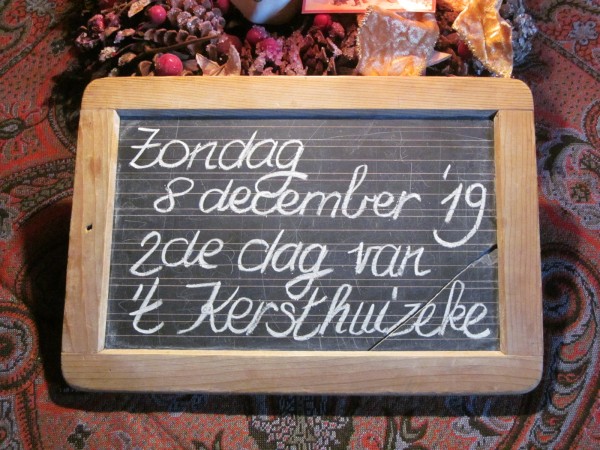 Zondag
8 december '19
2de dag van
't Kersthuizeke